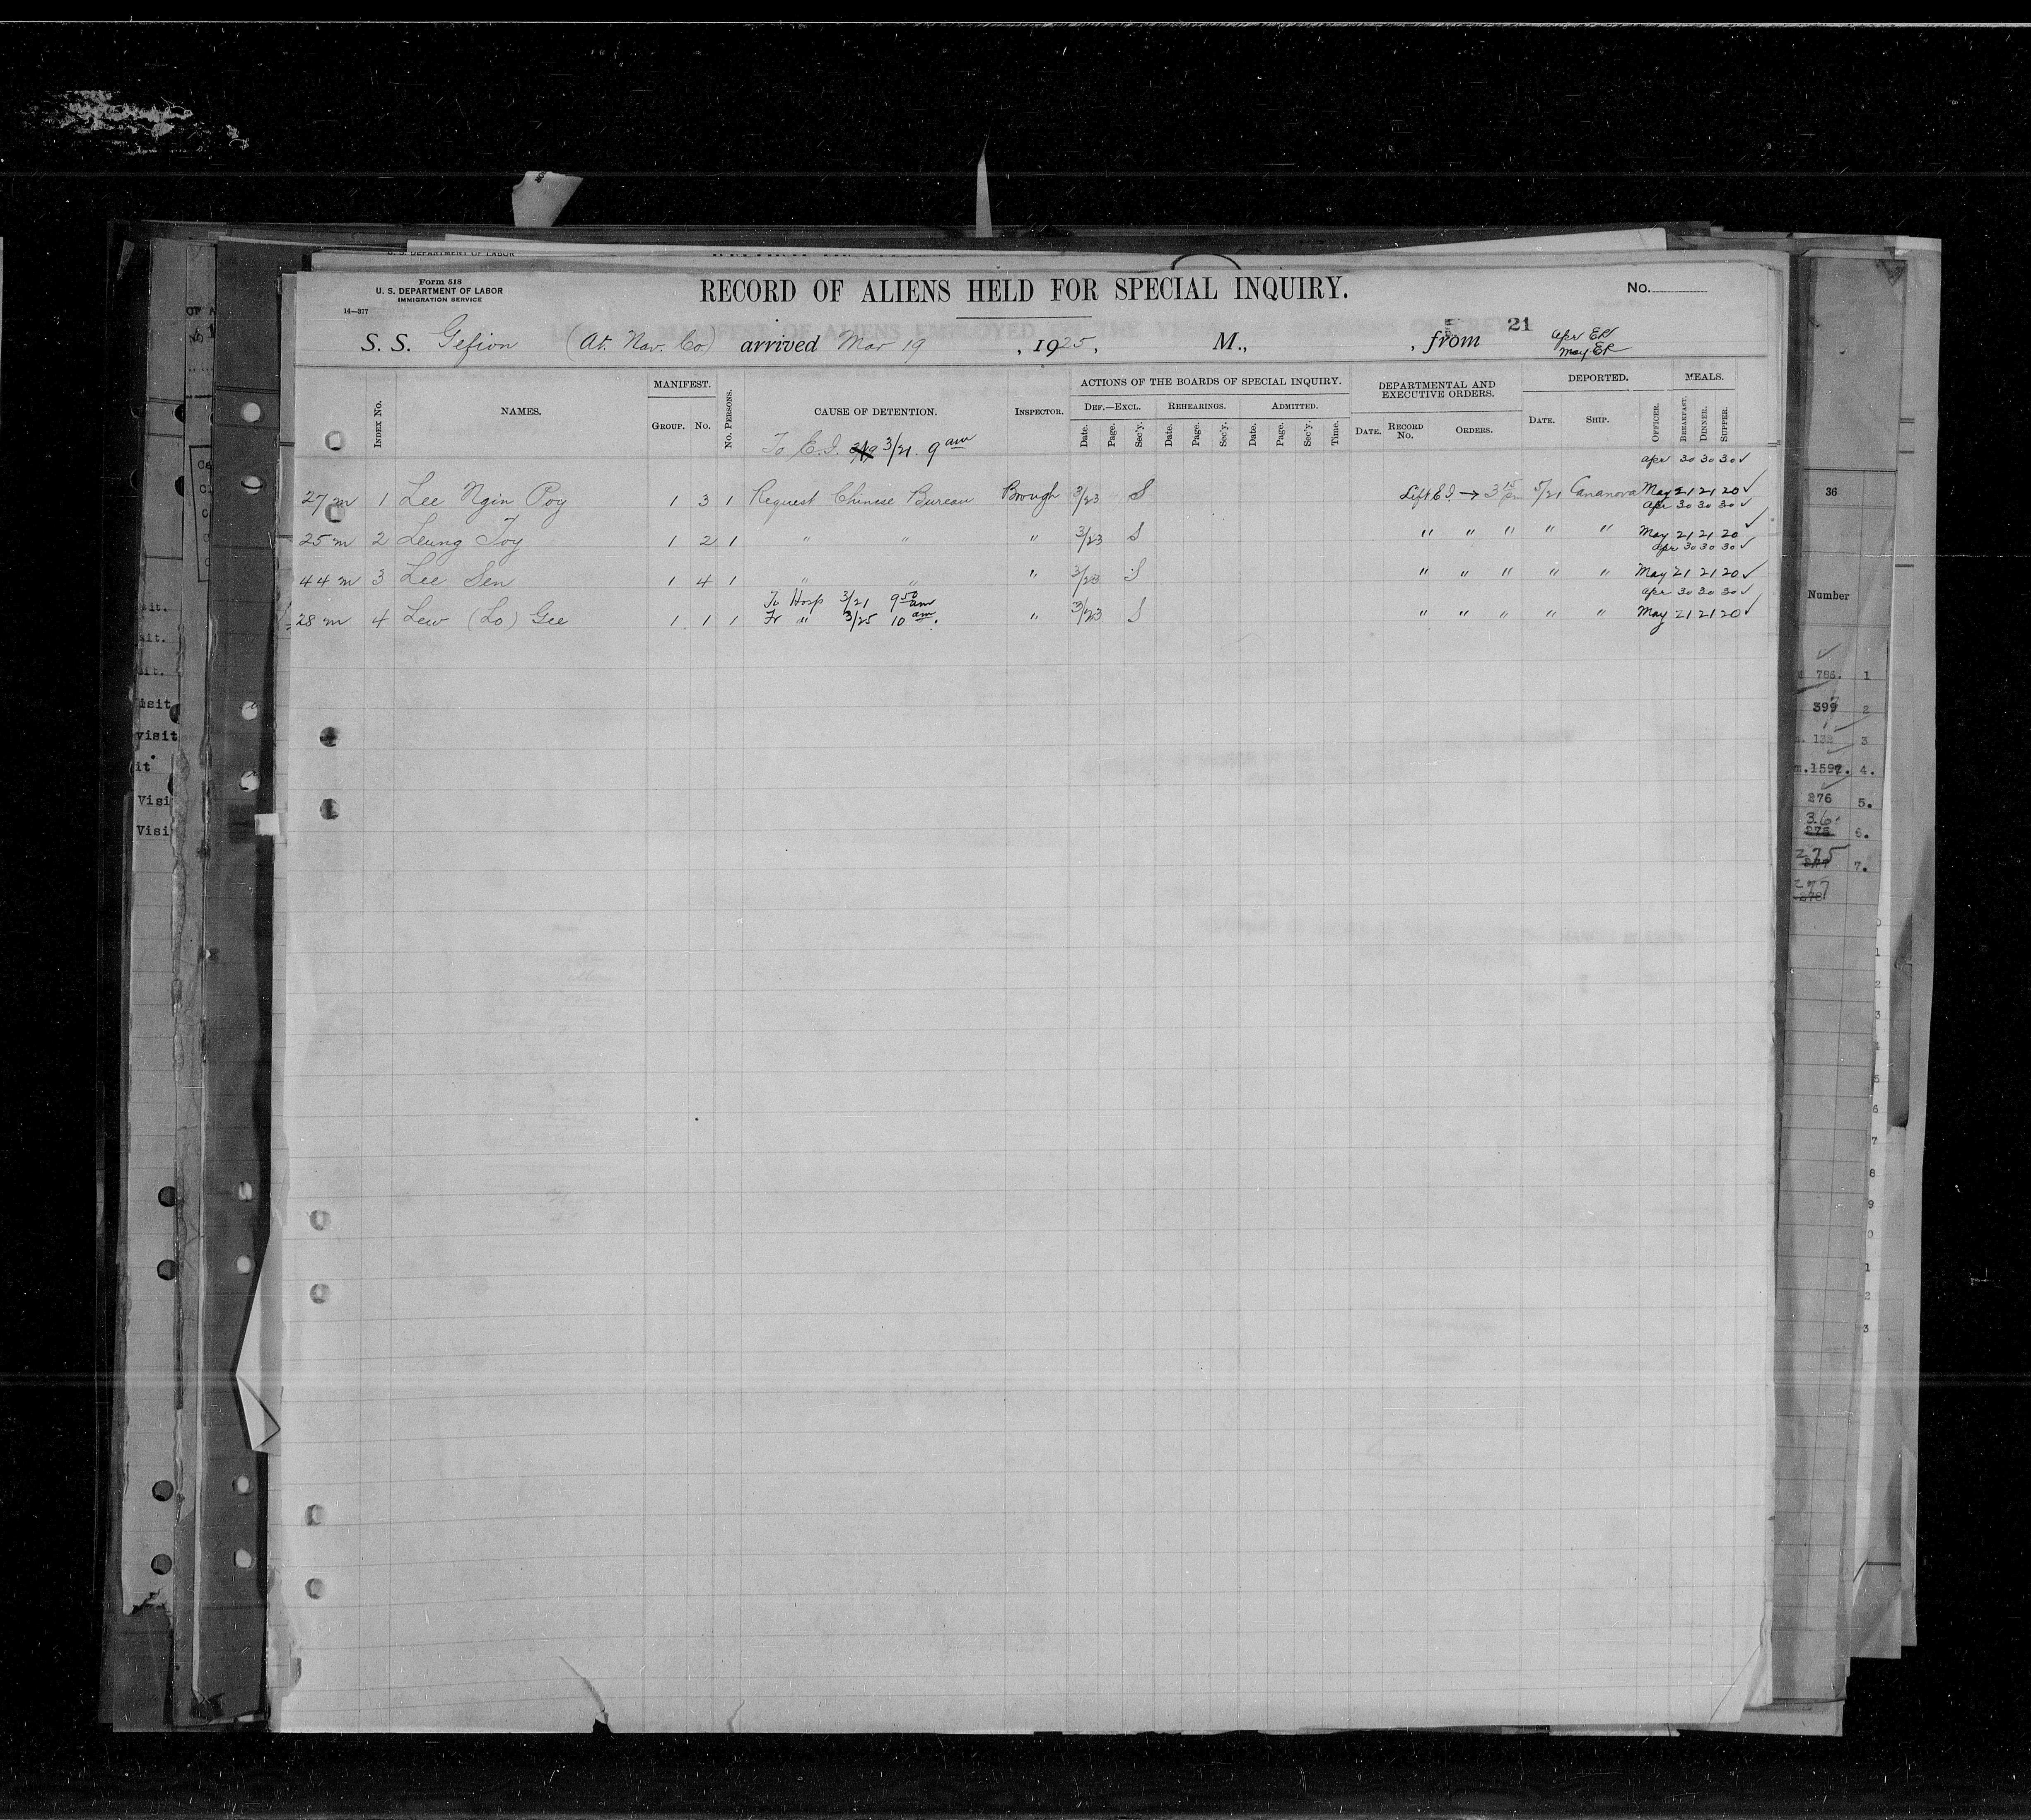 Form 518
U. S. DEPARTMENT OF LABOR
IMMIGRATION SERVICE
14—377
RECORD OF ALIENS HELD FOR SPECIAL INQUIRY.
No.
21
S. S. Gefion (At. Nav. Co.) arrived Mar 19, 1925, M., , from
Apr ER
May ER
INDEX No. NAMES. MANIFEST. GROUP. No. No. PERSONS. CAUSE OF DETENTION. INSPECTOR. ACTIONS OF THE BOARDS OF SPECIAL INQUIRY. DEF.—EXCL. Date. Page. Sec'y. REHEARINGS. Date. Page. Sec'y. ADMITTED. Date. Page. Sec'y. Time. DEPARTMENTAL AND EXECUTIVE ORDERS. DATE. RECORD No. ORDERS. DEPORTED. DATE. SHIP. OFFICER. MEALS. BREAKFAST. DINNER. SUPPER.
To E.I. 3/19 3/21. 9 am
Apr 30 30 30 ✓
27 m 1 Lee Ngin Poy 1 3 1 Request Chinese Bureau Brough 3/23 S Left E.I. → 3 15 pm 5/21 Cananova May 21 21 20 ✓
Apr 30 30 30 ✓
25 m 2 Leung Toy 1 2 1 " " " 3/23 S " " " " " May 21 21 20 ✓
Apr 30 30 30 ✓
44 m 3 Lee Sen 1 4 1 " " " 3/23 S " " " " " May 21 21 20 ✓
To Hosp 3/21 9 50 am
Apr 30 30 30 ✓
28 m 4 Lew (Lo) Gee 1 1 1 Fr " 3/25 10 am. " 3/23 S " " " " " May 21 21 20 ✓
36
Number
786. 1
399 2
3
1597. 4.
276 5.
36
275 6.
275
277 7.
277
278
visit
Visi
Visi